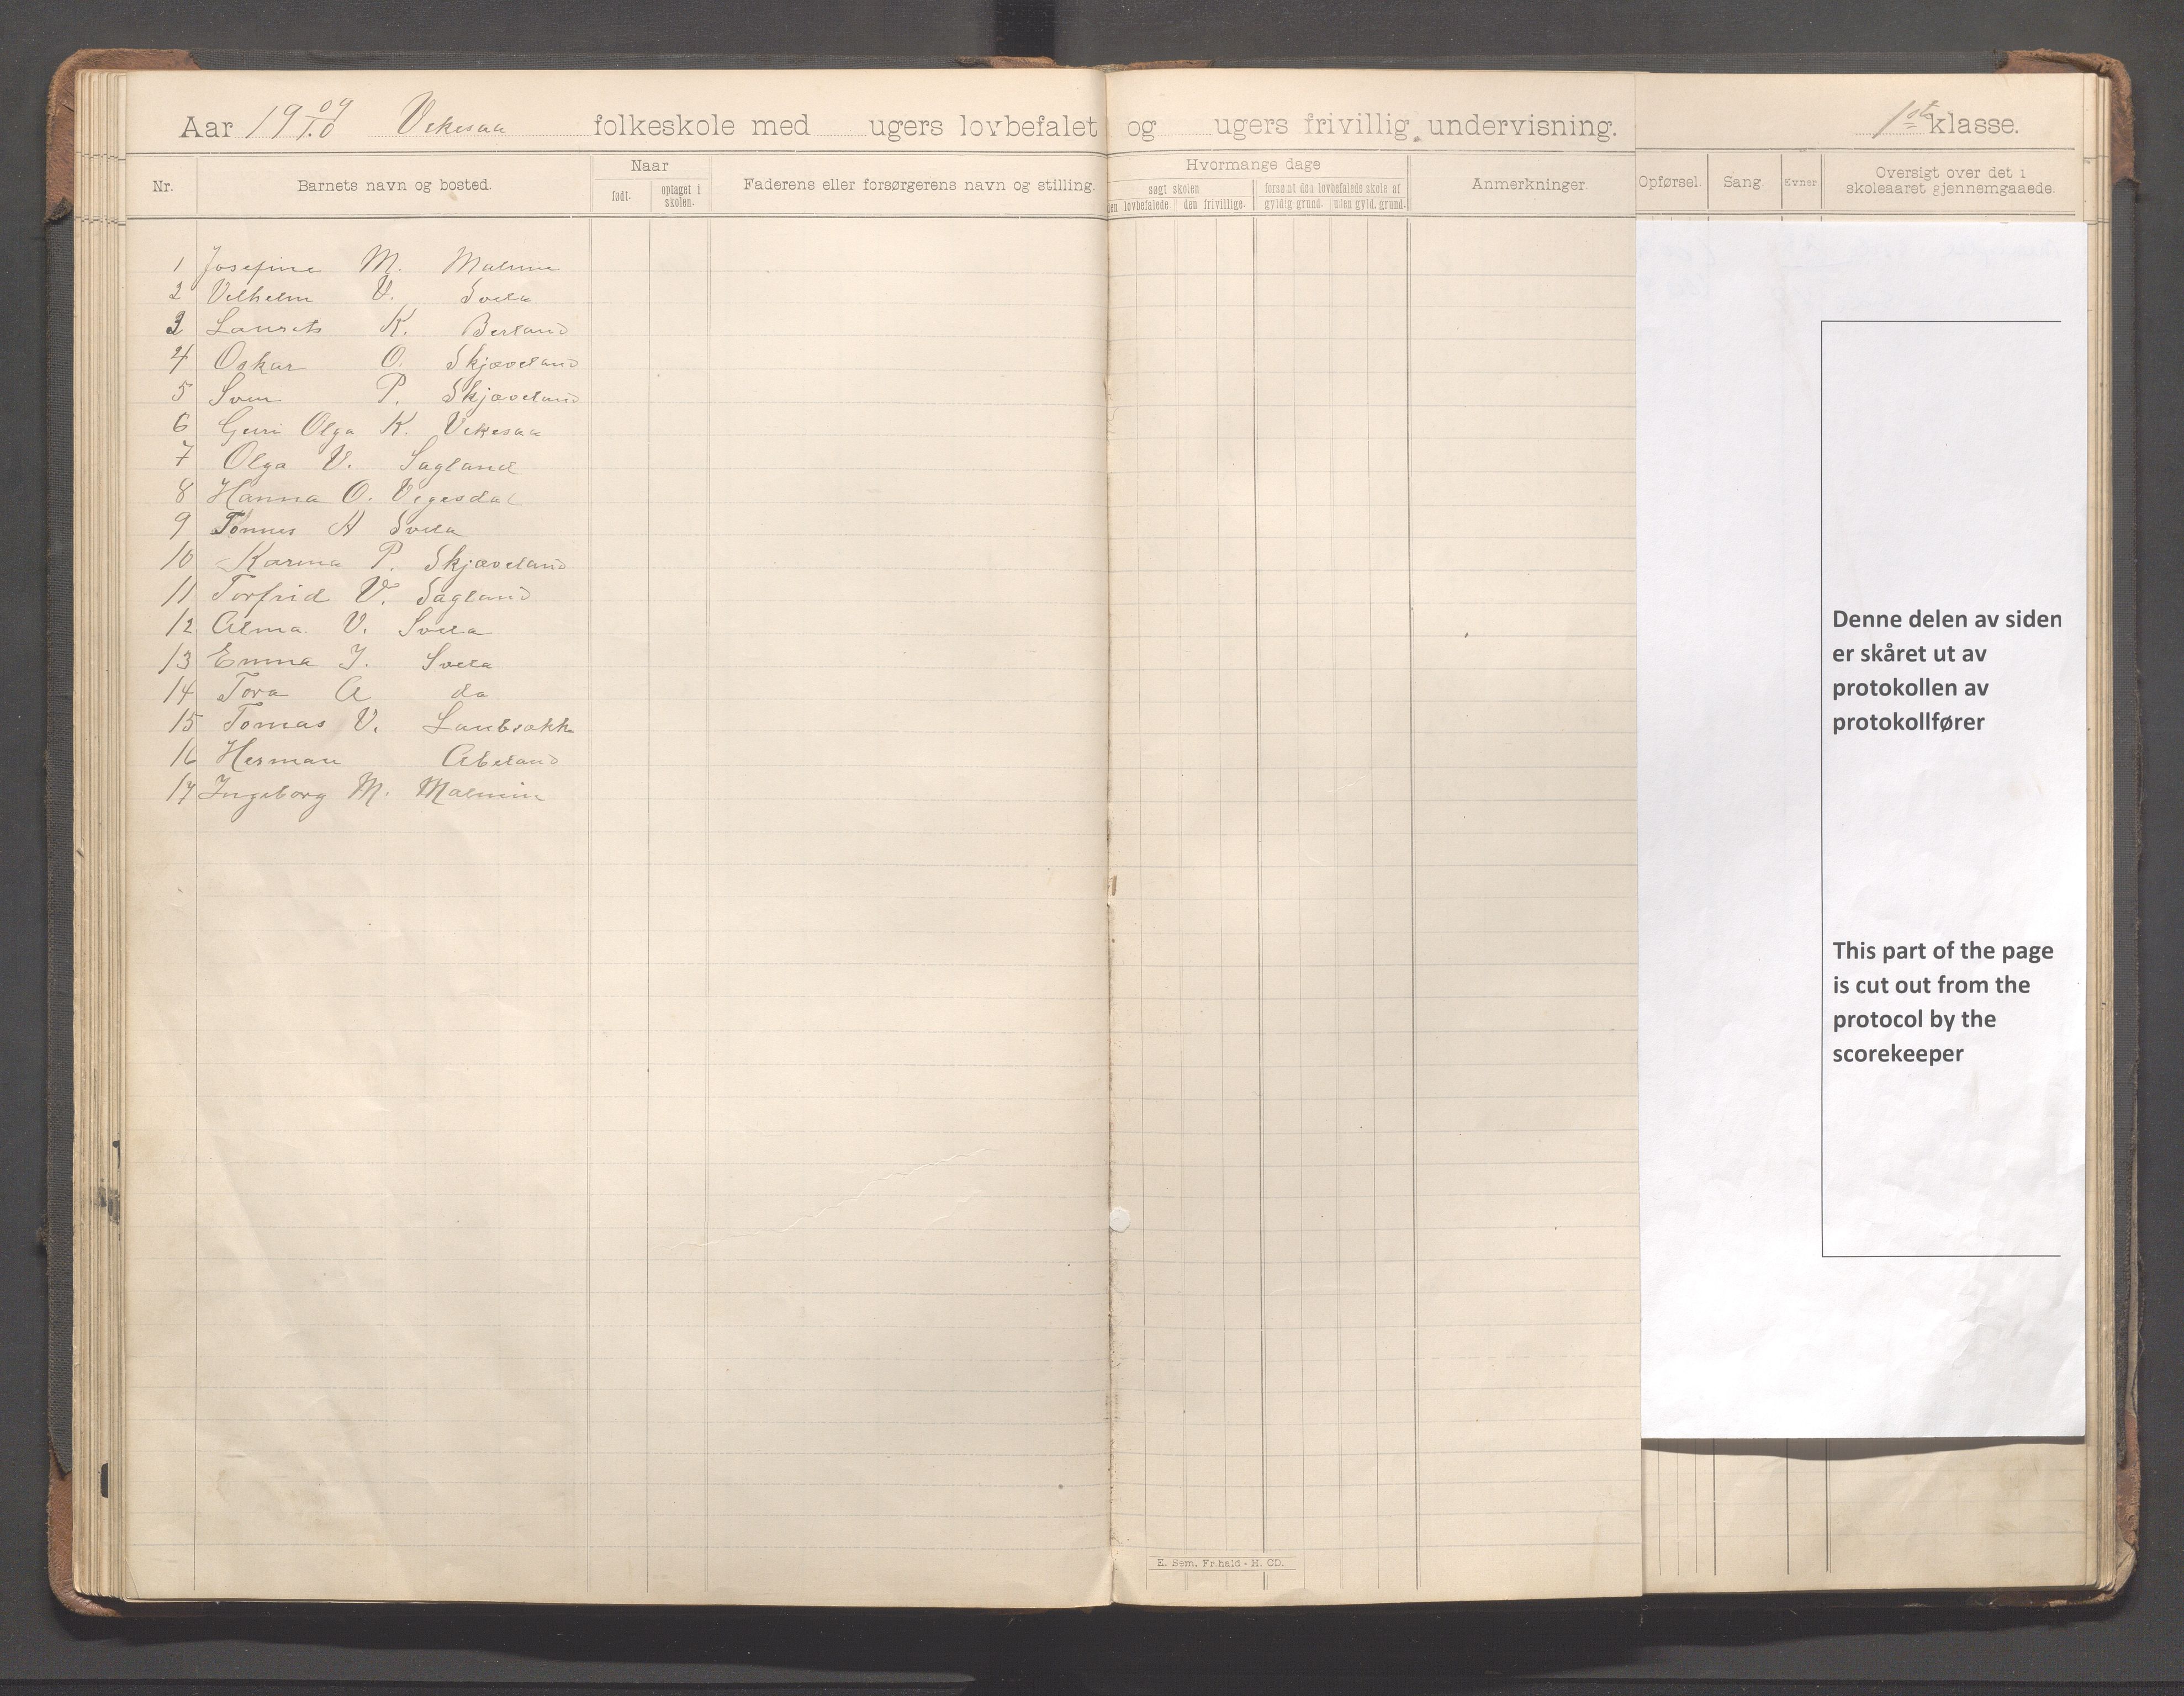 Aar 19 09/10 Vikesaa folkeskole med ugers lovbefalet og ugers frivillig undervisning. 1ste klasse.
Nr. Barnets navn og bosted. Naar født. optaget i skolen. Faderens eller forsørgerens navn og stilling. Hvormange dage søgt skolen den lovbefalede den frivillige. forsømt den lovbefalede skole af gyldig grund. uden gyld. grund. Anmerkninger. Opførsel. Sang. Evner Oversigt over det i skoleaaret gjennemgaaede.
1 Josefine M. Malmin
2 Vilhelm V. Svela
3 Laurits K. Berland
4 Oskar O. Skjæveland
5 Sven P. Skjæveland
6 Guri Olga K. Vikesaa
7 Olga V. Sagland
8 Hanna O. Vegesdal
9 Tønnes A Svela
10 Karina P. Skjæveland
11 Torfrid V. Sagland
12 Alma V. Svela
13 Emma I. Svela
14 Tora A do
15 Tomas V.
16 Herman Abeland
17 Ingeborg M. Malmin
Denne delen av siden
er skåret ut av
protokollen av
protokollfører
This part of the page
is cut out from the
protocol by the
scorekeeper
E. Sem. Fr.hald - H. CD.